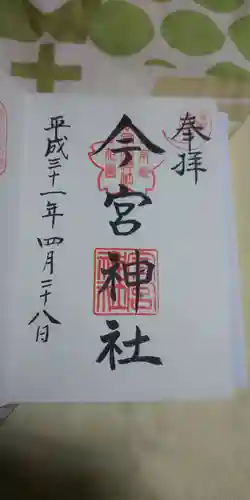 奉拝
今宮神社
平成三十一年四月二十八日